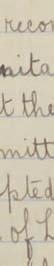 recon
nita
t the
mitt
pted
of L